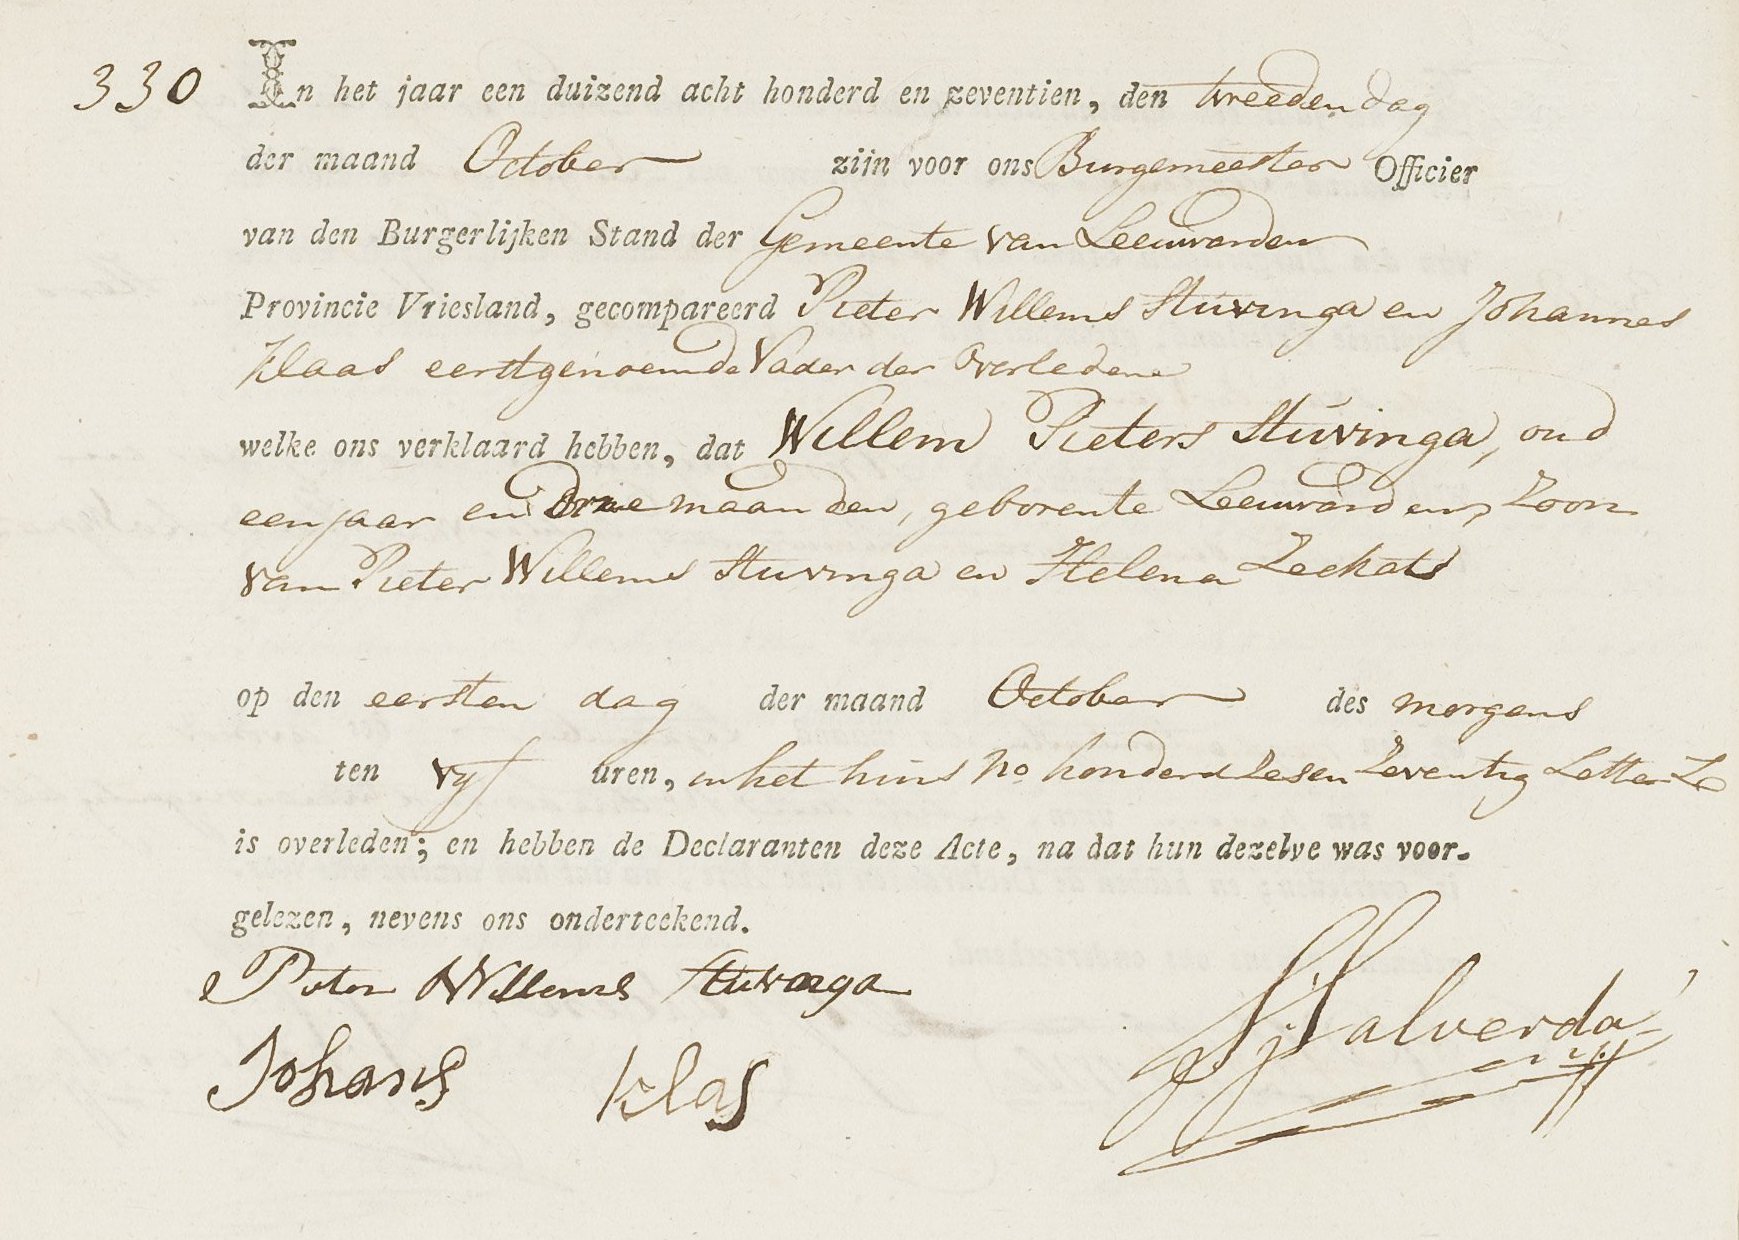 330 In het jaar een duizend acht honderd en zeventien, den tweeden dag
der maand October zijn voor ons Burgemeester Officier
van den Burgerlijken Stand der Gemeente van Leeuwarden
Provincie Vriesland, gecompareerd Pieter Willems Stuvinga en Johannes
Klaas eerstgenoemde Vader der Overledene
welke ons verklaard hebben, dat Willem Pieters Stuvinga, oud
een jaar en Drie maanden, geboren te Leeuwarden, Zoon
van Pieter Willems Stuvinga en Helena Zeekats
op den eersten dag der maand October des morgens
ten vyf uren, in het huis No honderd zesen Zeventig Letter
is overleden; en hebben de Declaranten deze Acte, na dat hun dezelve was voor-
gelezen, nevens ons onderteekend.
Pieter Willems Stuvinga
Johans Klas Salverda